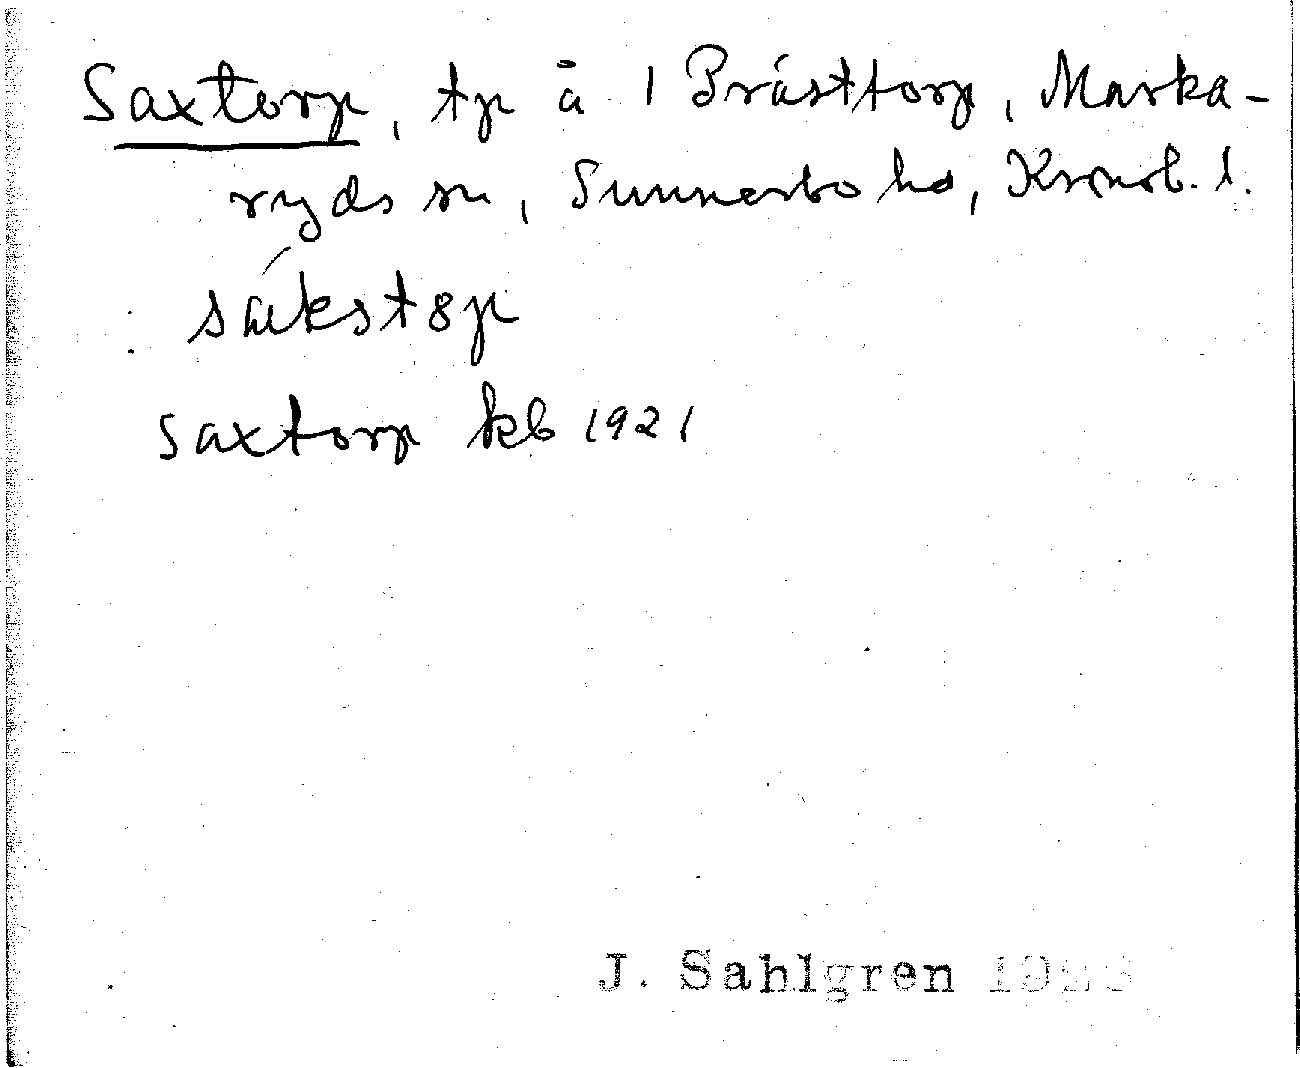 Saxtorp, tp å 1 Prästtorp, Marka-
ryds sn, Sunnerbo hd, Kronob. l.
säkstɞp
Saxtorp kb 1921
J. Sahlgren